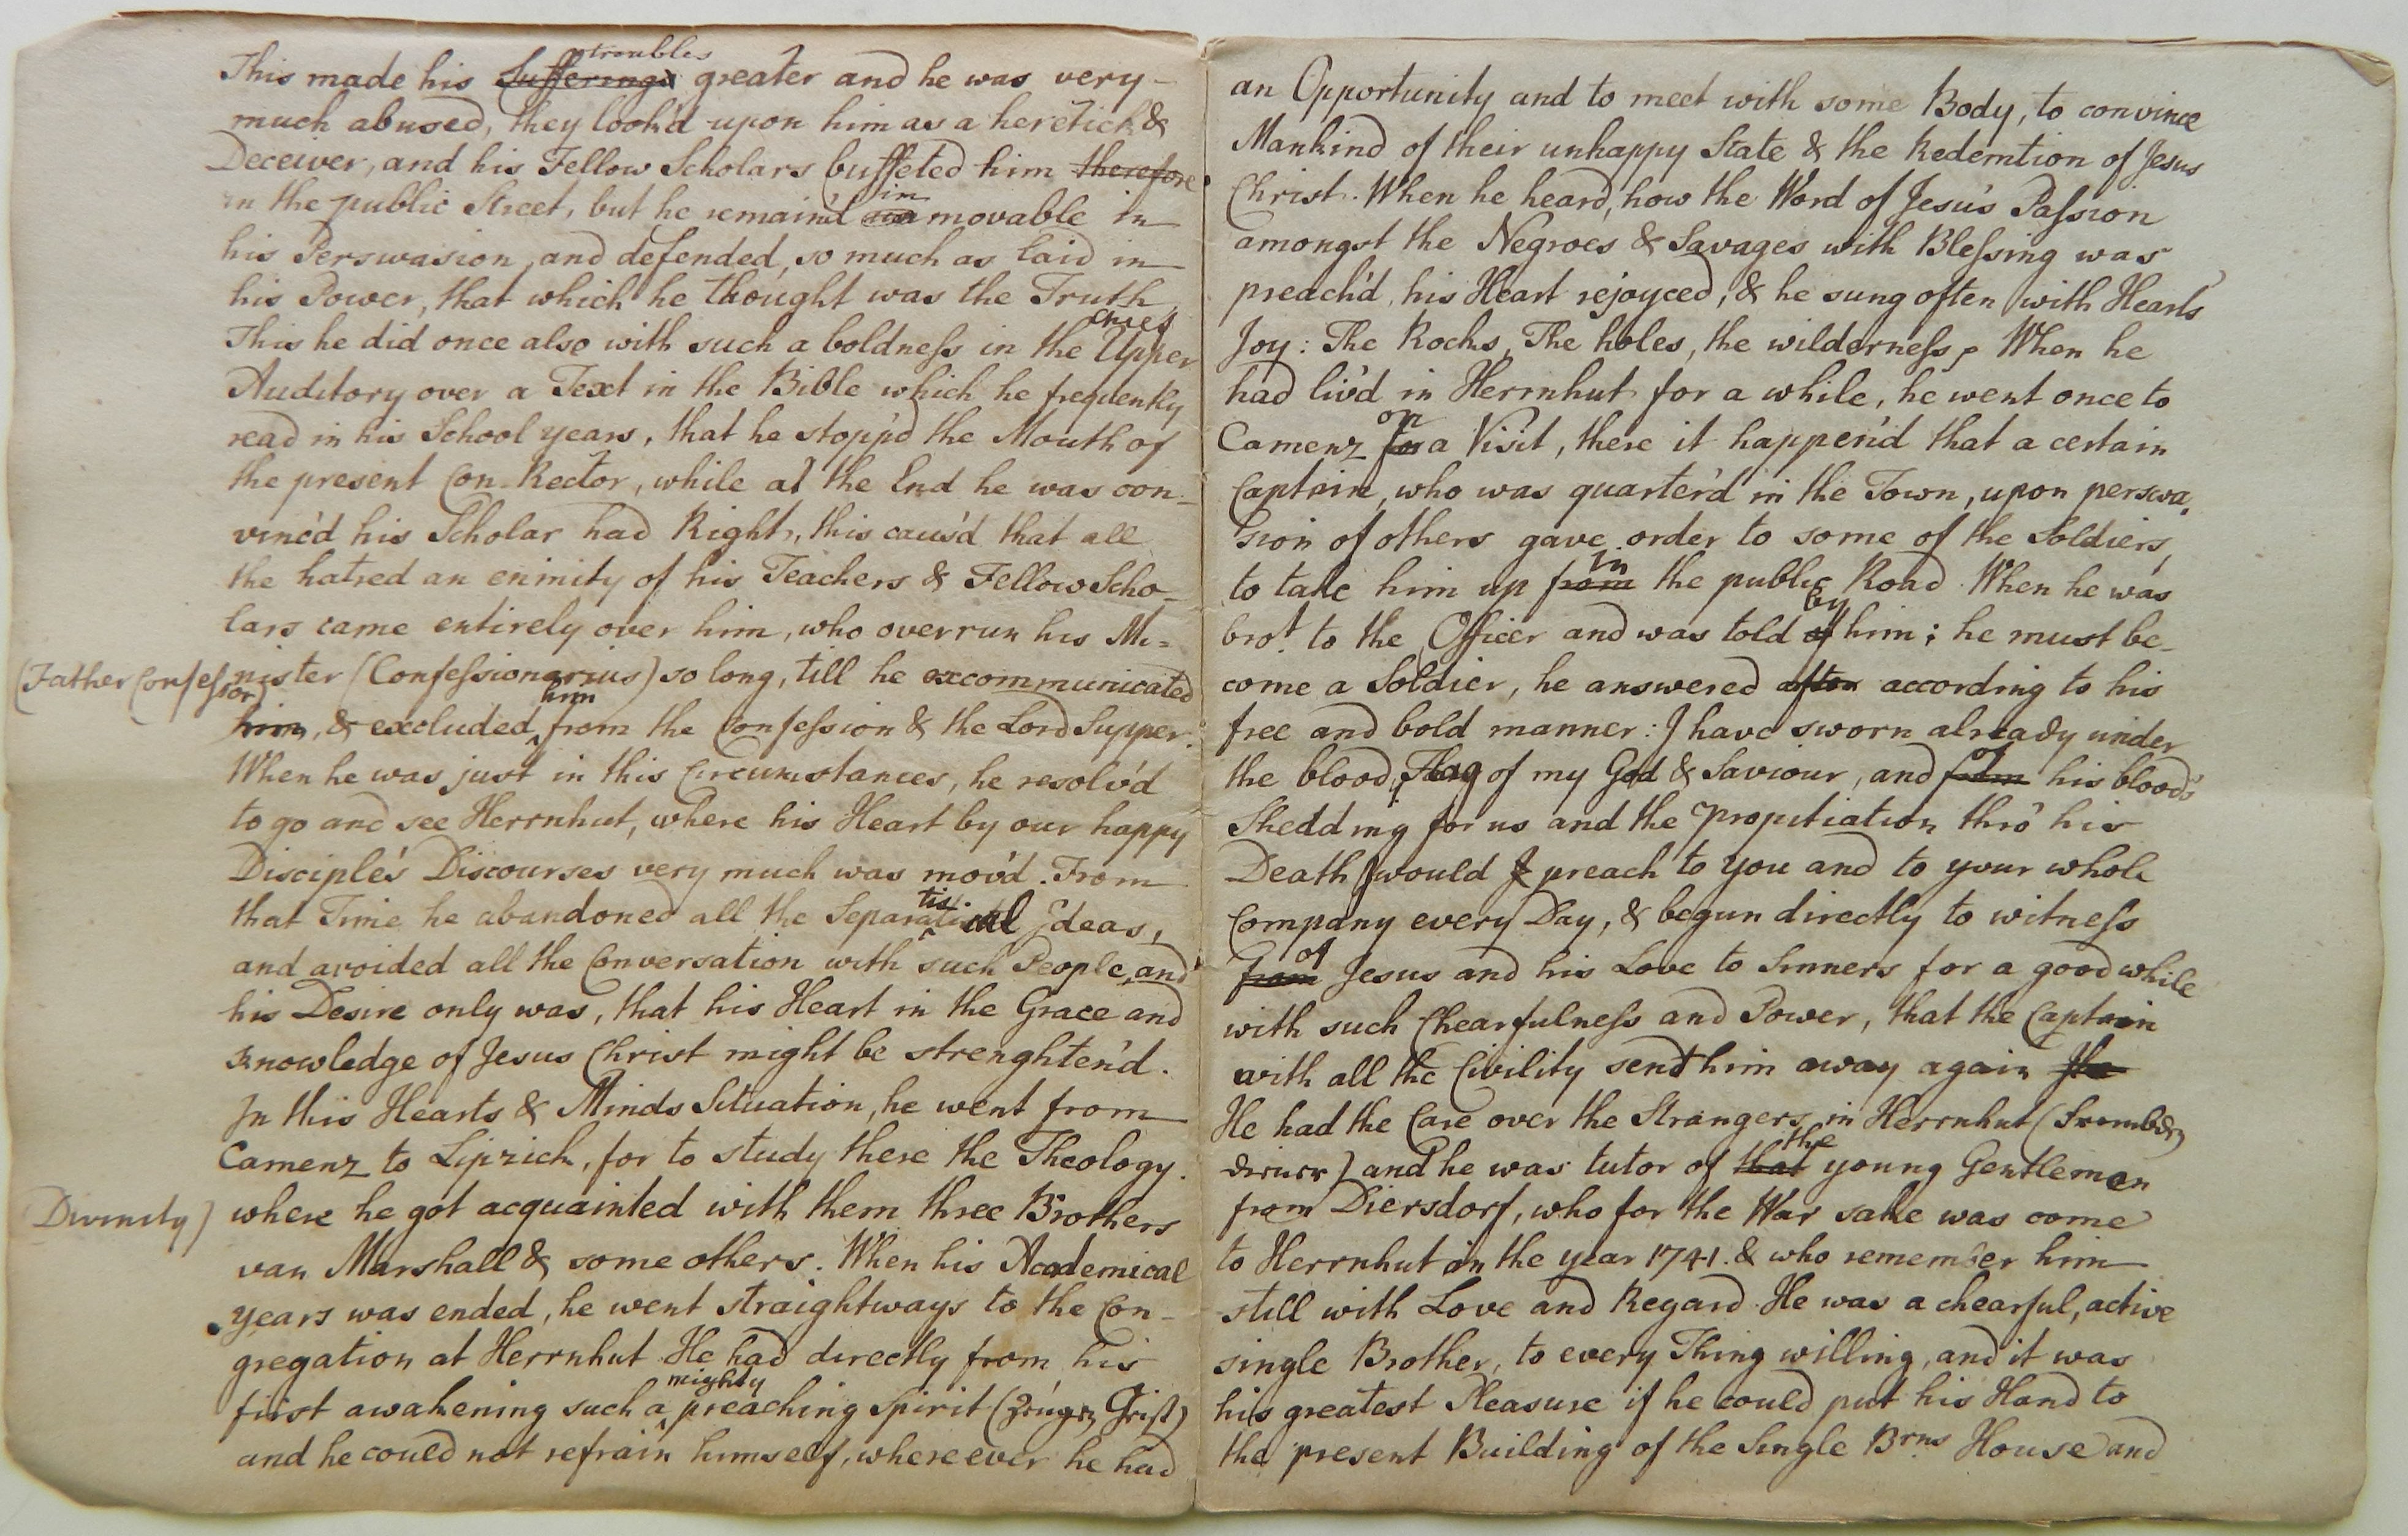 This made his Sufferings troubles greater and he was very
much abused, they look'd upon him as a heretick &
Deceiver, and his Fellow Scholars buffeted him therefore
in the public Street, but he remain'd in movable in
his Perswasion, and defended, so much as laid in
his Power, that which he thought was the Truth,
This he did once also with such a boldness in the Upper chief
Auditory over a Text in the Bible which he frequently
read in his School years, that he stopp'd the Mouth of
the present Con-Rector, while at the End he was con-
vinc'd his Scholar had Right, this caus'd that all
the hatred an enimity of his Teachers & Fellow Scho-
lars came entirely over him, who overrun his Mi=
(Father Confessor) nister (Confessionarius) so long, till he excommunicated
him, & excluded him from the Confession & the Lord Supper.
When he was just in this Circumstances, he resolv'd
to go and see Herrnhut, where his Heart by our happy
Disciple's Discourses very much was mov'd. From
that Time he abandoned all the Separatistical Ideas,
and avoided all the Conversation with such People, and
his Desire only was, that his Heart in the Grace and
Knowledge of Jesus Christ might be strenghten'd.
In this Hearts & Minds Situation, he went from
Camenz to Lipzich, for to study there the Theology.
Divinity) where he got acquainted with them three Brothers
van Marshall & some others. When his Academical
years was ended, he went straightways to the Con-
gregation at Herrnhut. He had directly from his
first awakening such a mighty preaching Spirit (Zeugen Geist)
and he could not refrain himself, where ever he had
an Opportunity and to meet with some Body, to convince
Mankind of their unhappy State & the Redemtion of Jesus
Christ. When he heard, how the Word of Jesu's Passion
amongst the Negroes & Savages with Blessing was
preach'd, his Heart rejoyced, & he sung often with Hearts
Joy: The Rocks, The holes, the wilderness, When he
had liv'd in Herrnhut for a while, he went once to
Camenz for on a Visit, there it happen'd that a certain
Captain, who was quarter'd in the Town, upon perswa-
sion of others gave order to some of the Soldiers,
to take him up from in the public Road. When he was
bro.t to the Officer and was told of by him; he must be-
come a Soldier, he answered after according to his
free and bold manner: I have sworn already under
the blood, Flag of my God & Saviour, and from of his blood's
Shedding for us and the Propitiation thro' his
Death I would I preach to you and to your whole
Company every Day, & begun directly to witness
from of Jesus and his Love to Sinners for a good while
with such Chearfulness and Power, that the Captain
with all the Civility send him away again He
He had the Care over the Strangers in Herrnhut (Fremden
diener) and he was tutor of that the young Gentlemen
from Diersdorf, who for the War sake was come
to Herrnhut in the year 1741. & who remember him
still with Love and Regard. He was a chearful, active
single Brother, to every Thing willing, and it was
his greatest Pleasure if he could put his Hand to
the present Building of the Single Brns House and